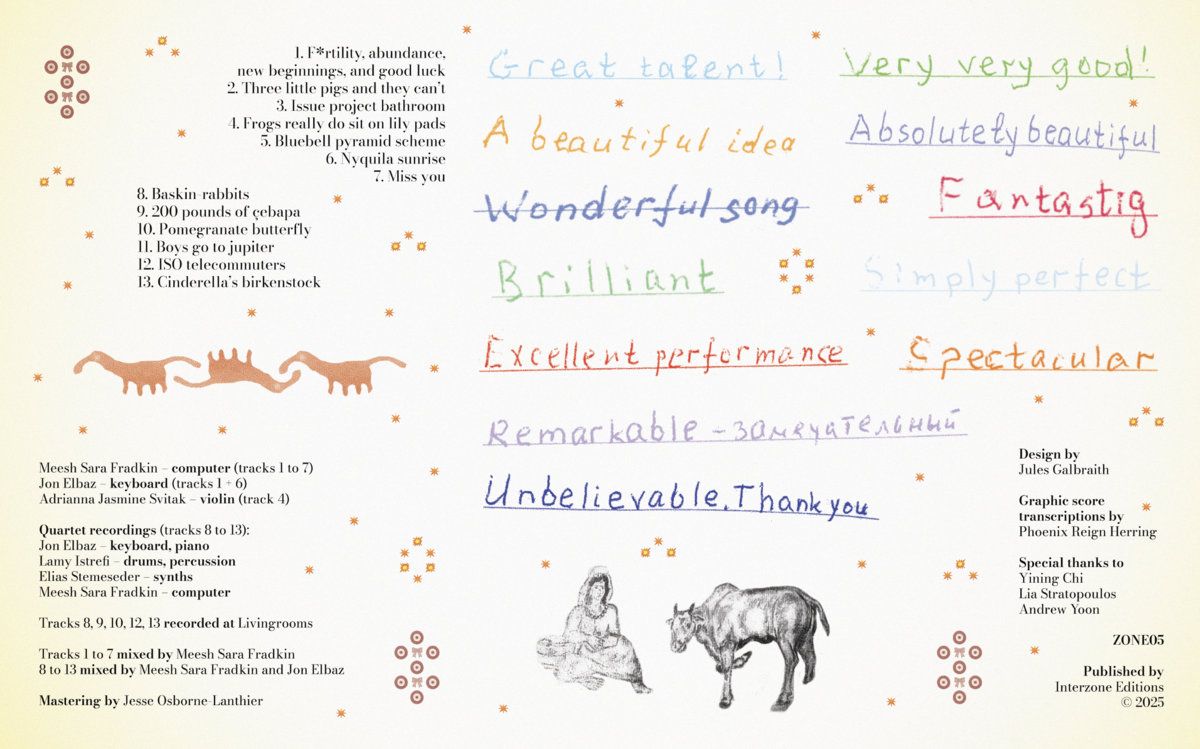 1. F*rtility, abundance,
new beginnings, and good luck
2. Three little pigs and they can't
3. Issue project bathroom
4. Frogs really do sit on lily pads
5. Bluebell pyramid scheme
6. Nyquila sunrise
7. Miss you
8. Baskin-rabbits
9. 200 pounds of çebapa
10. Pomegranate butterfly
11. Boys go to jupiter
12. ISO telecommuters
13. Cinderella's birkenstock
Meesh Sara Fradkin – computer (tracks 1 to 7)
Jon Elbaz – keyboard (tracks 1 + 6)
Adrianna Jasmine Svitak – violin (track 4)
Quartet recordings (tracks 8 to 13):
Jon Elbaz – keyboard, piano
Lamy Istrefi – drums, percussion
Elias Stemeseder – synths
Meesh Sara Fradkin – computer
Tracks 8, 9, 10, 12, 13 recorded at Livingrooms
Tracks 1 to 7 mixed by Meesh Sara Fradkin
8 to 13 mixed by Meesh Sara Fradkin and Jon Elbaz
Mastering by Jesse Osborne-Lanthier
Great talent!
Very very good!
A beautiful idea
Absolutely beautiful
Wonderful song
Fantastig
Brilliant
Simply perfect
Excellent performance
Spectacular
Remarkable – замечательный
Unbelievable. Thank you
Design by
Jules Galbraith
Graphic score
transcriptions by
Phoenix Reign Herring
Special thanks to
Yining Chi
Lia Stratopoulos
Andrew Yoon
ZONE05
Published by
Interzone Editions
© 2025